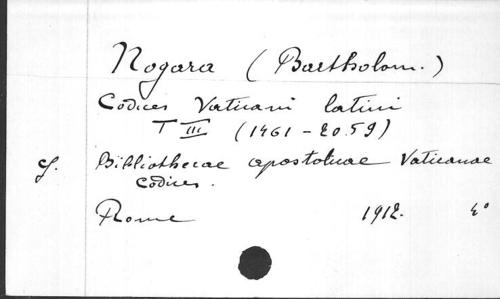 Nogara (Bartholom.)
Codices Vaticani latini
T III (1461-2059)
cf. Bibliothecae apostolicae Vaticanae
Codices.
Rome 1912. 4°